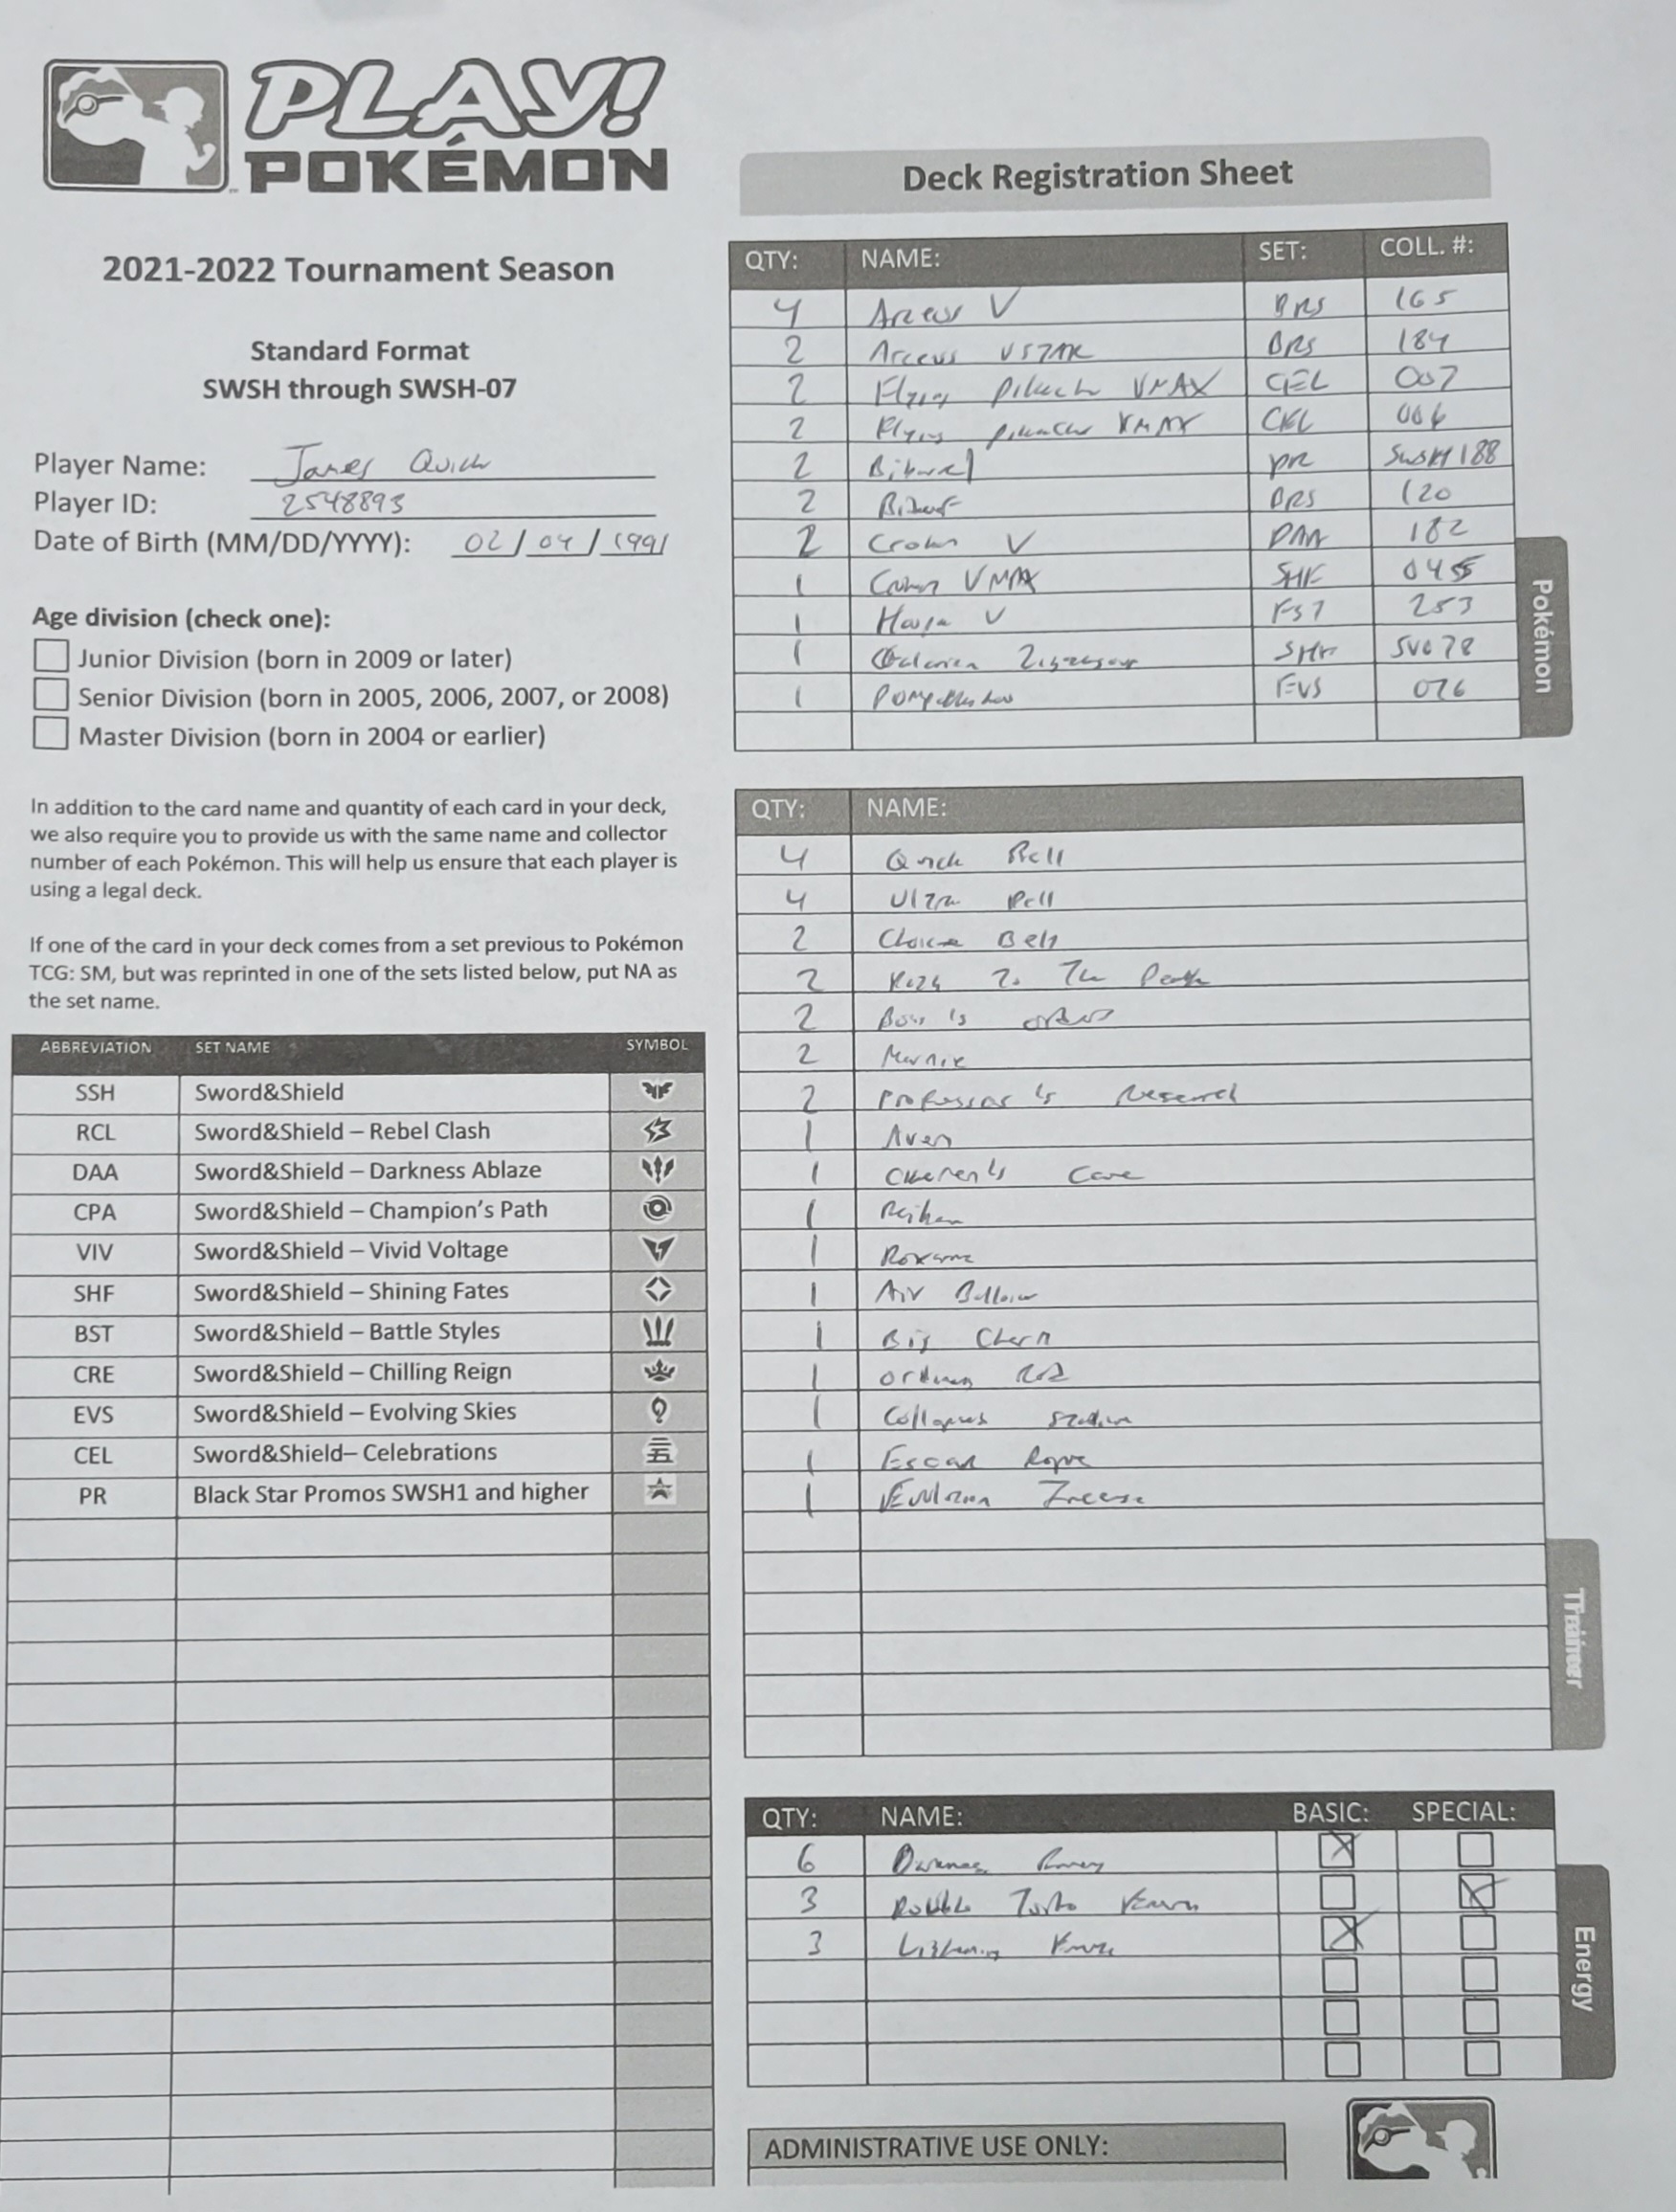 PLAY!
POKÉMON
2021-2022 Tournament Season
Standard Format
SWSH through SWSH-07
Player Name: James Quick
Player ID: 2548893
Date of Birth (MM/DD/YYYY): 02/04/1991
Age division (check one):
Junior Division (born in 2009 or later)
Senior Division (born in 2005, 2006, 2007, or 2008)
Master Division (born in 2004 or earlier)
In addition to the card name and quantity of each card in your deck,
we also require you to provide us with the same name and collector
number of each Pokémon. This will help us ensure that each player is
using a legal deck.
If one of the card in your deck comes from a set previous to Pokémon
TCG: SM, but was reprinted in one of the sets listed below, put NA as
the set name.
ABBREVIATION SET NAME SYMBOL
SSH Sword&Shield
RCL Sword&Shield – Rebel Clash
DAA Sword&Shield – Darkness Ablaze
CPA Sword&Shield – Champion's Path
VIV Sword&Shield – Vivid Voltage
SHF Sword&Shield – Shining Fates
BST Sword&Shield – Battle Styles
CRE Sword&Shield – Chilling Reign
EVS Sword&Shield – Evolving Skies
CEL Sword&Shield– Celebrations
PR Black Star Promos SWSH1 and higher
Deck Registration Sheet
QTY: NAME: SET: COLL. #:
4 Arceus V BRS 165
2 Arceus VSTAR BRS 184
2 Flying Pikachu VMAX CEL 007
2 Flying Pikachu VMAX CEL 006
2 Bibarel PR SWSH188
2 Bidoof BRS 120
2 Crobat V DAA 182
1 Crobat VMAX SHF 045
1 Hoopa V FST 253
1 Galarian Zigzagoon SHF SV078
1 EVS 076
Pokémon
QTY: NAME:
4 Quick Ball
4 Ultra Ball
2 Choice Belt
2 Path To The Peak
2 Boss's orders
2 Marnie
2 Professor's Research
1 Avery
1 Cheren's Care
1 Raihan
1 Roxanne
1 Air Balloon
1 Big Charm
1 Ordinary Rod
1 Collapsed Stadium
1 Escape Rope
1 Evolution Incense
Trainer
QTY: NAME: BASIC: SPECIAL:
6 Darkness Energy X
3 Double Turbo Energy X
3 Lightning Energy X
Energy
ADMINISTRATIVE USE ONLY: